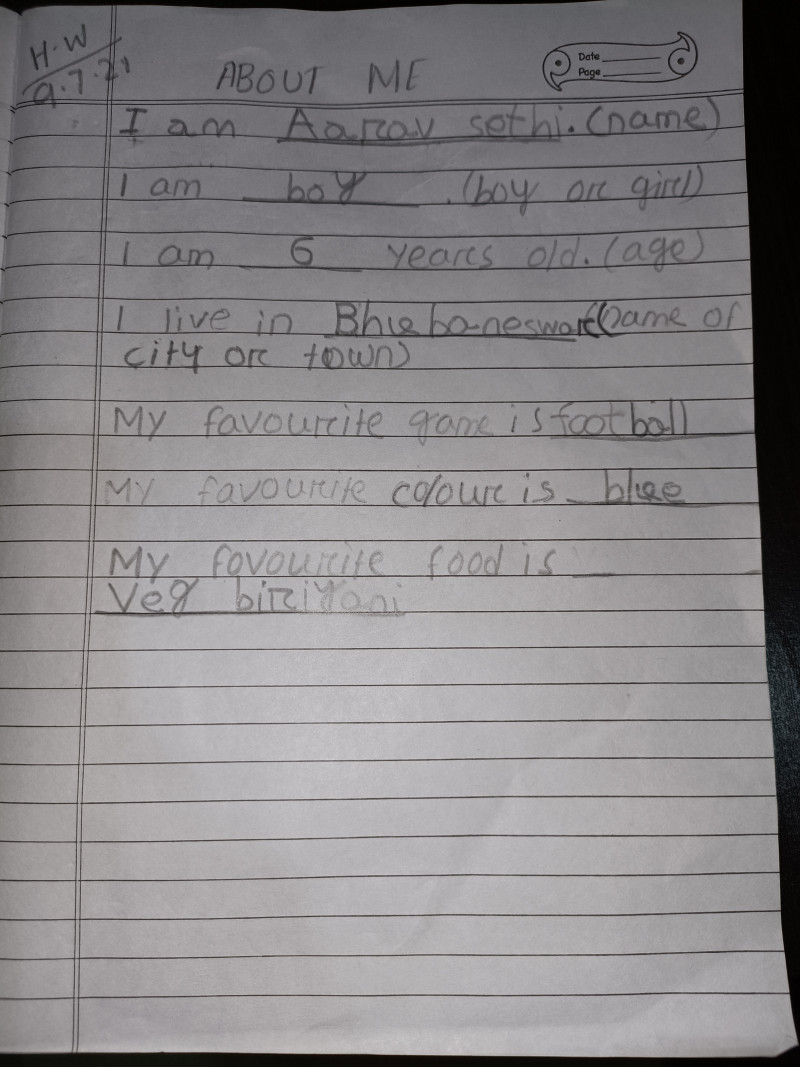 H.W
9.7.21
Date
Page
ABOUT ME
I am Aarav sethi. (name)
I am boy . (boy or girl)
I am 6 years old. (age)
I live in Bhubaneswar (name of
city or town)
My favourite game is football
My favourite colour is blue
My favourite food is
Veg biriyani